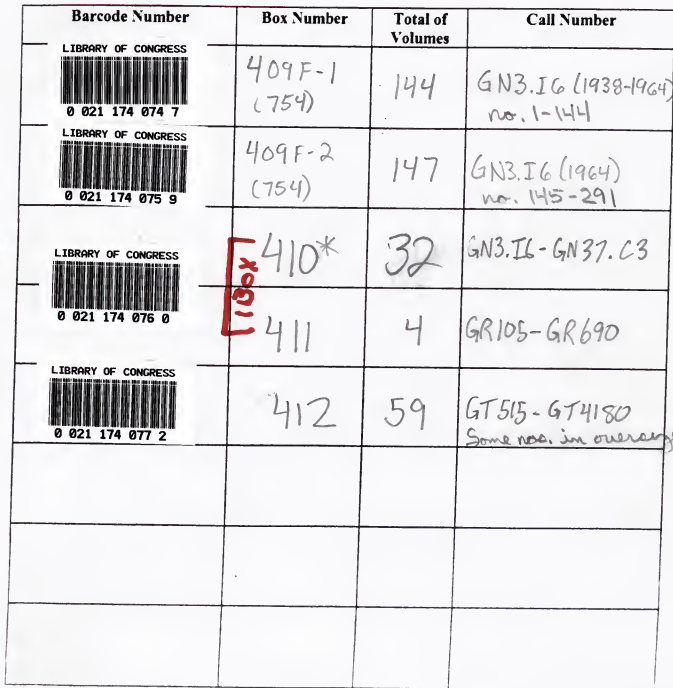 Barcode Number Box Number Total of Volumes Call Number
LIBRARY OF CONGRESS
0 021 174 074 7
409F-1
(754)
144
GN3.I6 (1938-1964)
no. 1-144
LIBRARY OF CONGRESS
0 021 174 075 9
409F-2
(754)
147
GN3.I6 (1964)
no. 145-291
LIBRARY OF CONGRESS
0 021 174 076 0
1 BOX
410*
32
GN3.I6-GN37.C3
411
4
GR105-GR690
LIBRARY OF CONGRESS
0 021 174 077 2
412
59
GT515-GT4180
Some nos. in